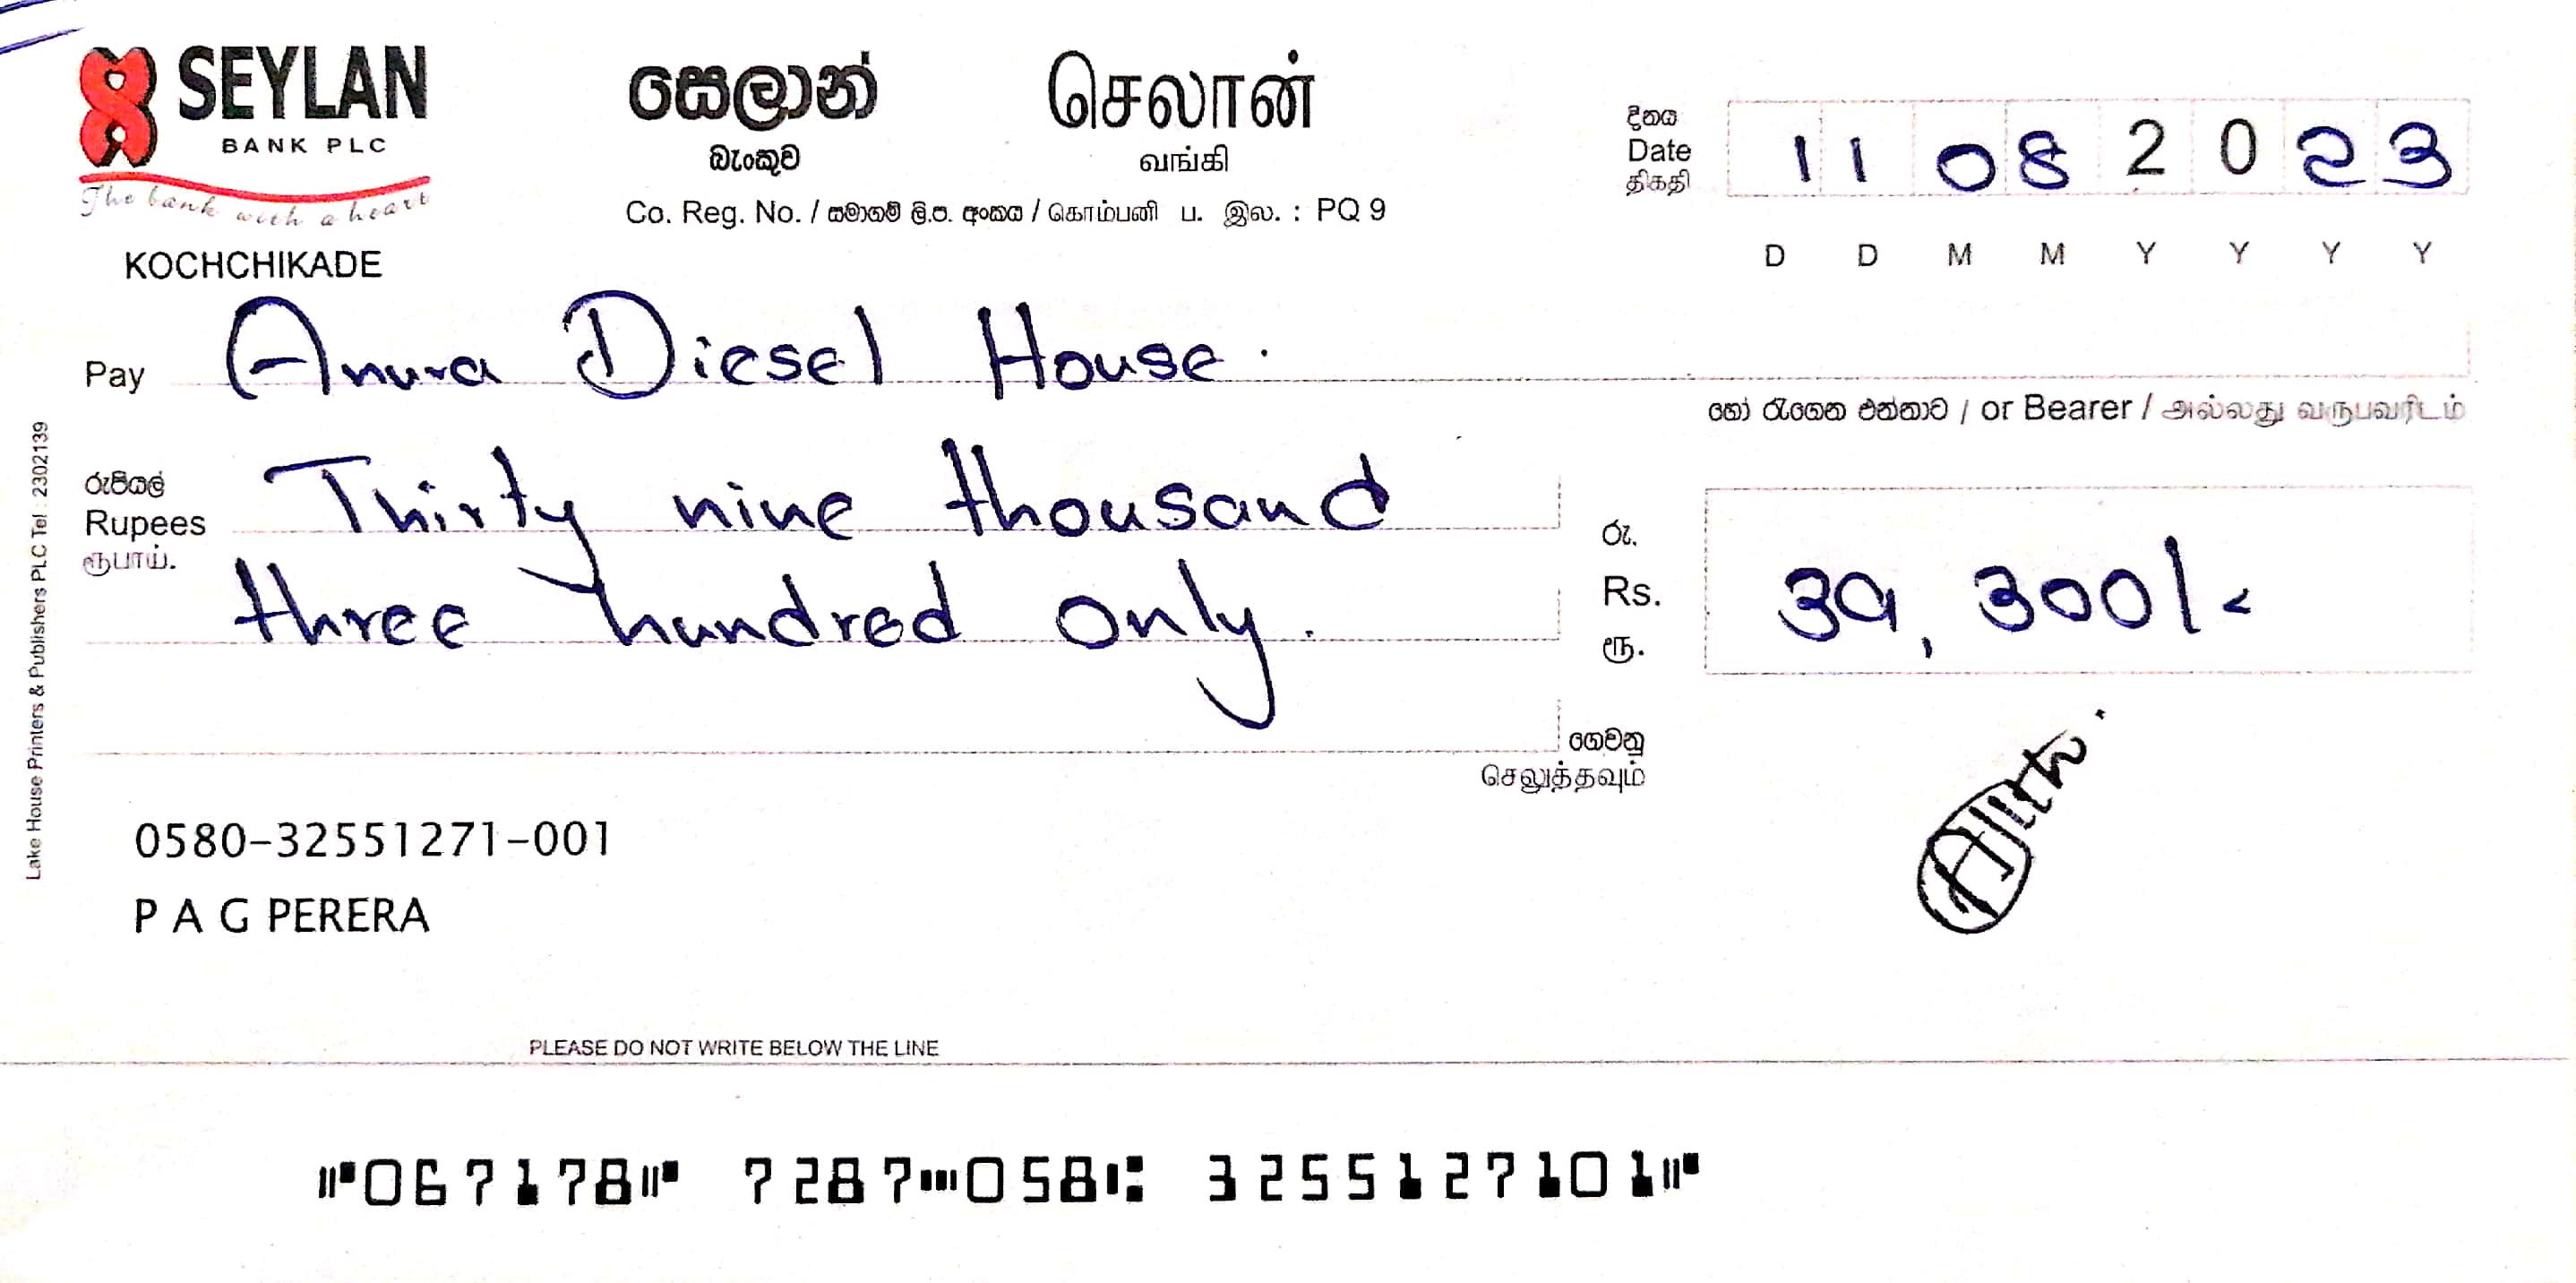 SEYLAN
BANK PLC
The bank with a heart
KOCHCHIKADE
සෙලාන්
බැංකුව
செலான்
வங்கி
Co. Reg. No. / සමාගම් ලි.ප. අංකය / கொம்பனி ப. இல. : PQ 9
දිනය
Date
திகதி
11 08 2023
D D M M Y Y Y Y
Pay Anura Diesel House.
හෝ රැගෙන එන්නාට / or Bearer / அல்லது வருபவரிடம்
රුපියල්
Rupees
ரூபாய்.
Thirty nine thousand
three hundred only.
රු.
Rs.
ரூ.
39,300/-
ගෙවනු
செலுத்தவும்
0580-32551271-001
P A G PERERA
PLEASE DO NOT WRITE BELOW THE LINE
⑈067178⑈ 7287⑉058⑆ 3255127101⑈
Lake House Printers & Publishers PLC Tel : 2302139